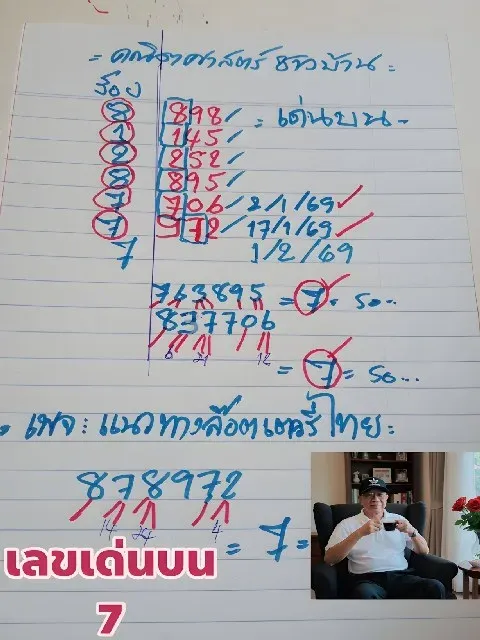 = คณิตศาสตร์ชาวบ้าน =
ร้อย
8 898 / = เด่นบน -
1 145 /
2 252 /
8 895 /
7 706 / 2/1/69 ✓
7 972 / 17/1/69 ✓
7 1/2/69
763895 = 7 = รอ...
837706
6 21 12
= 7 = รอ...
เพจ: แนวทางล๊อตเตอรี่ไทย:
878972
14 24 4
= 7 =
เลขเด่นบน
7